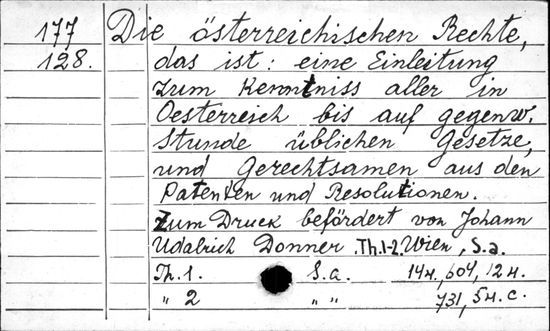 177 Die österreichischen Rechte,
128. das ist: eine Einleitung
zum Kenntniss aller in
Oesterreich bis auf gegenw.
Stunde üblichen Gesetze,
und Gerechtsamen aus den
Patenten und Resolutionen.
Zum Druck befördert von Johann
Udalrich Donner. Th.1-2. Wien, S.a.
Th. 1. S.a. 14н, 604, 12н.
" 2 " " 731, 5н. с.